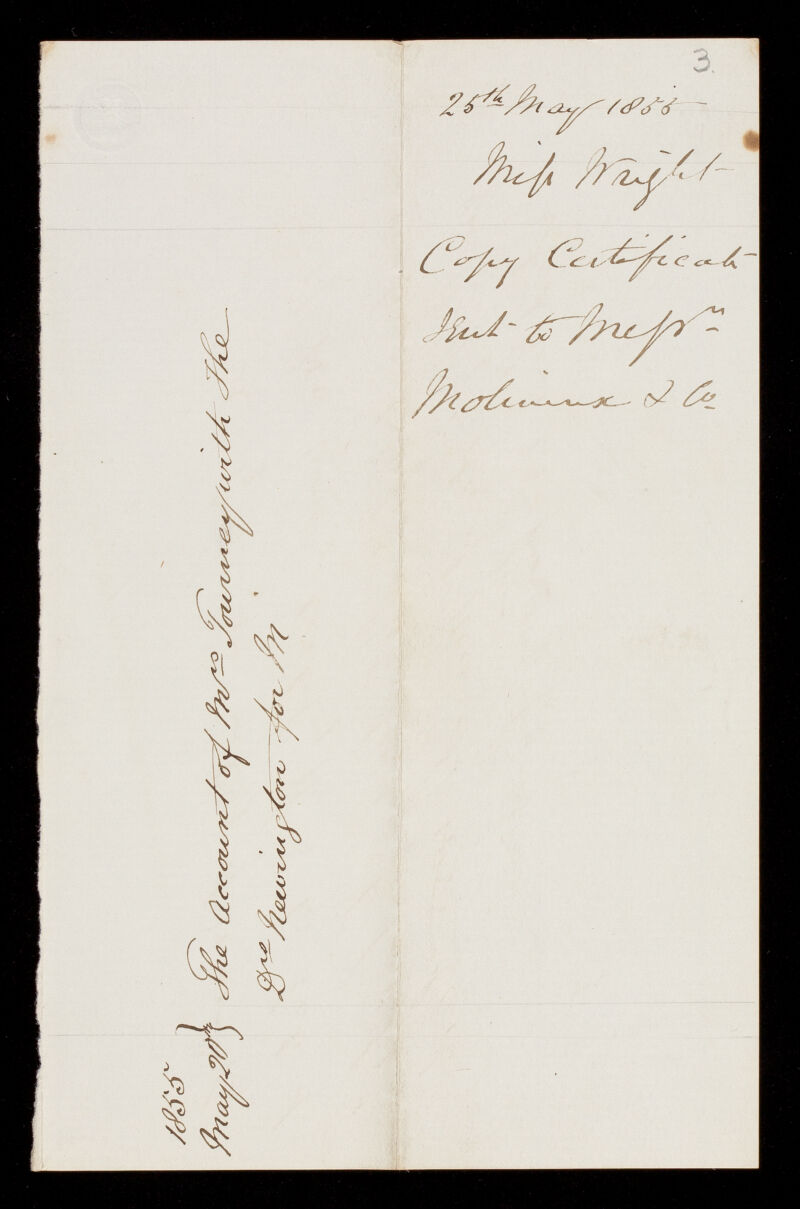 3.
25th May 1855
Miss Wright
Copy Certificate
Sent to Messrs
Molineux & Co
1855
May 20th } The Account of Mrs Tourney with The
Drs Newington for M